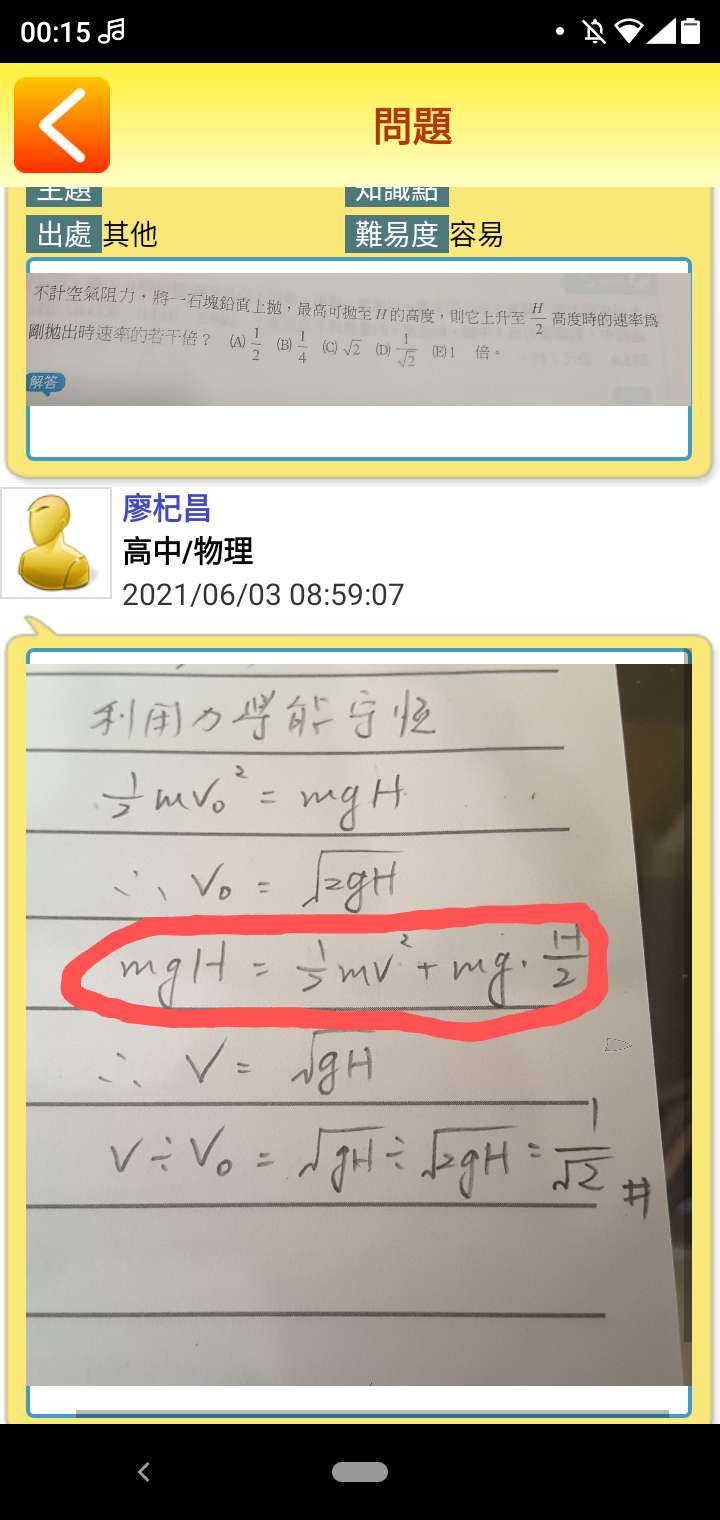 00:15
問題
主題 知識點
出處 其他 難易度 容易
不計空氣阻力，將一石塊鉛直上拋，最高可拋至 H 的高度，則它上升至 H/2 高度時的速率為
剛拋出時速率的若干倍？ (A) 1/2 (B) 1/4 (C) √2 (D) 1/√2 (E) 1 倍。
解答
廖杞昌
高中/物理
2021/06/03 08:59:07
利用力學能守恆
1/2 mV₀² = mgH
∴ V₀ = √2gH
mgH = 1/2 mV² + mg · H/2
∴ V = √gH
V ÷ V₀ = √gH ÷ √2gH = 1/√2 #